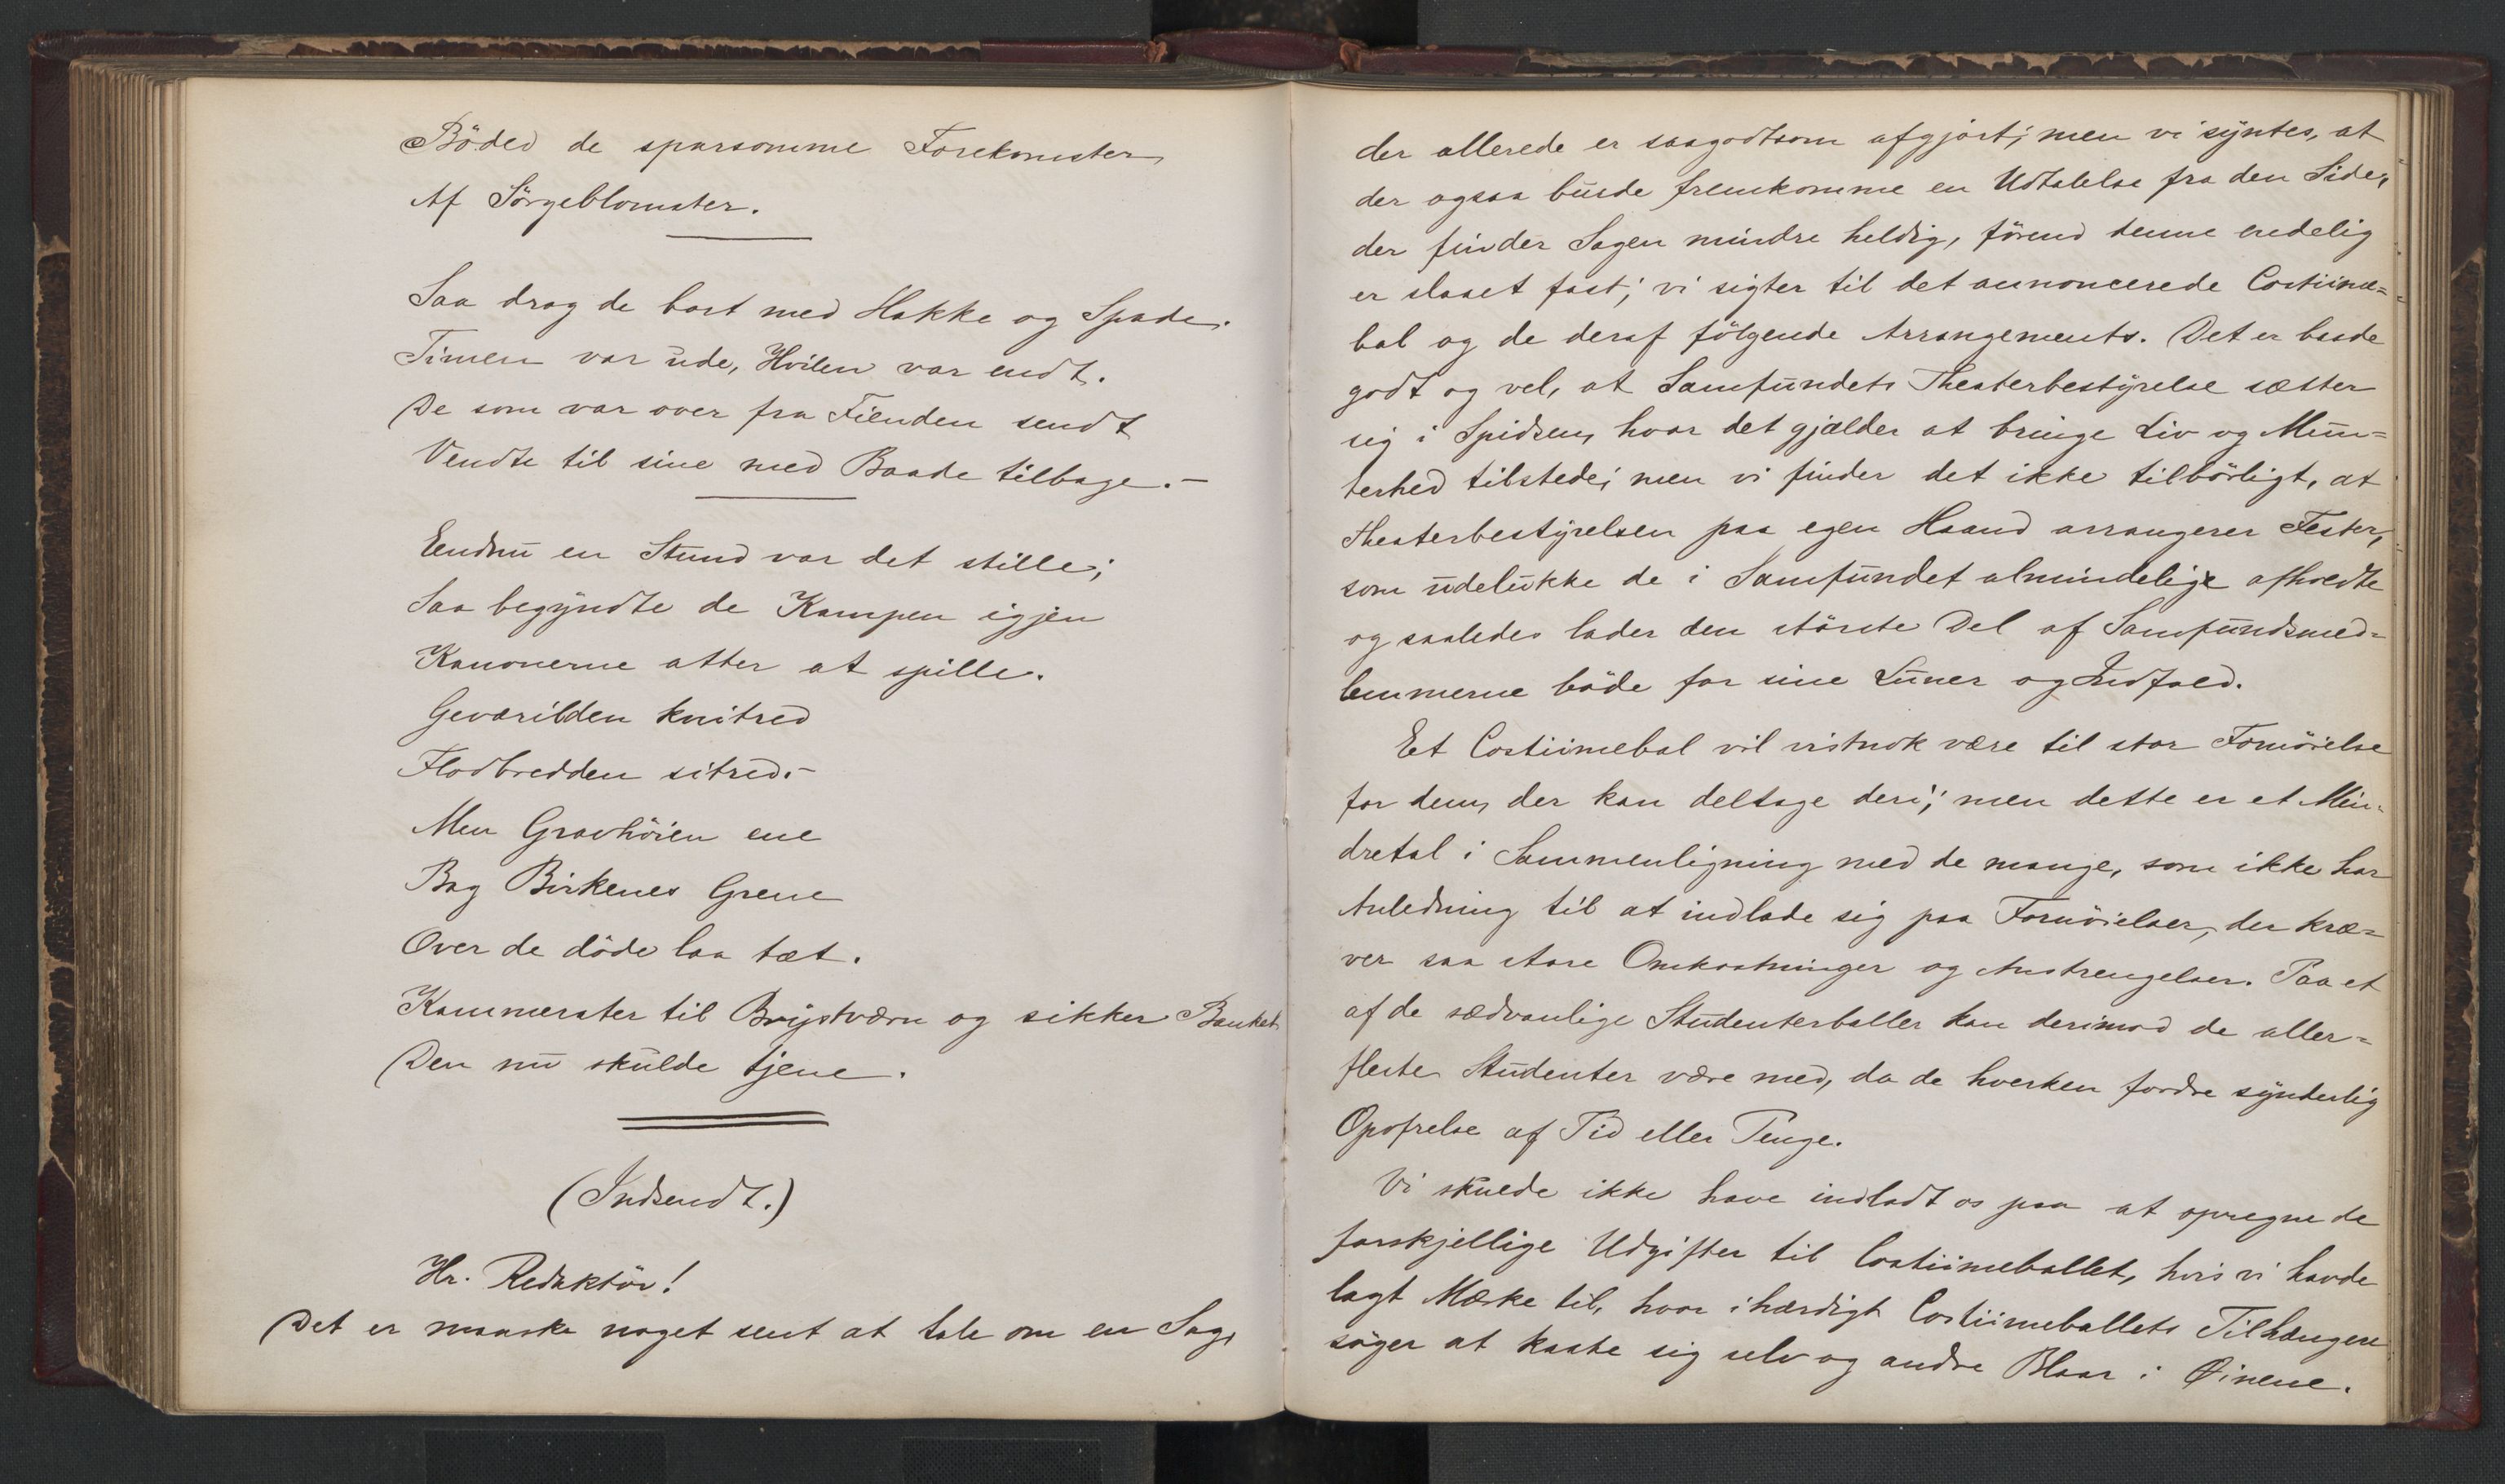 Böded de sparsomme Forekomster
Af Sörgeblomster.
Saa drog de bort med Hakke og Spade.
Timen var ude, Hvilen var endt.
De som var over fra Fienden sendt
Vendte til sine med Baade tilbage. —
Endnu en Stund var det stille;
Saa begyndte de Kampen igjen
Kanonerne atter at spille.
Geværilden knitred
Flodbredden sitred. —
Men Gravhöien ene
Bag Birkenes Grene
Over de döde laa tæt.
Kammerater til Brystværn og sikker Banket
Den nu skulde tjene.
(Indsendt.)
Hr. Redaktör!
Det er maaske noget sent at tale om en Sag,
der allerede er saagodtsom afgjort; men vi syntes, at
der ogsaa burde fremkomme en Udtalelse fra den Side,
der finder Sagen mindre heldig, förend denne endelig
er slaaet fast; vi sigter til det annoncerede Costüme=
bal og de deraf fölgende Arrangements. Det er baade
godt og vel, at Samfundets Theaterbestyrelse sætter
sig i Spidsen, hvor det gjælder at bringe Liv og Mun=
terhed tilstede; men vi finder det ikke tilbörligt, at
Theaterbestyrelsen paa egen Haand arrangerer Fester,
som udelukke de i Samfundet almindelige afholdte
og saaledes lader den störste Del af Samfundsmed=
lemmerne böde for sine Luner og Indfald.
Et Costümebal vil vistnok være til stor Fornöielse
for dem, der kan deltage deri; men dette er et Min=
dretal i Sammenligning med de mange, som ikke har
Anledning til at indlade sig paa Fornöielser, der kræ=
ver saa store Omkostninger og Anstrengelser. Paa et
af de sædvanlige Studenterballer kan derimod de aller=
fleste Studenter være med, da de hverken fordre synderlig
Opofrelse af Tid eller Penge.
Vi skulde ikke have indladt os paa at opregne de
forskjellige Udgifter til Costümeballet, hvis vi havde
lagt Mærke til, hvor ihærdigt Costümeballets Tilhængere
söger at kaste sig selv og andre Blaar i Øinene.